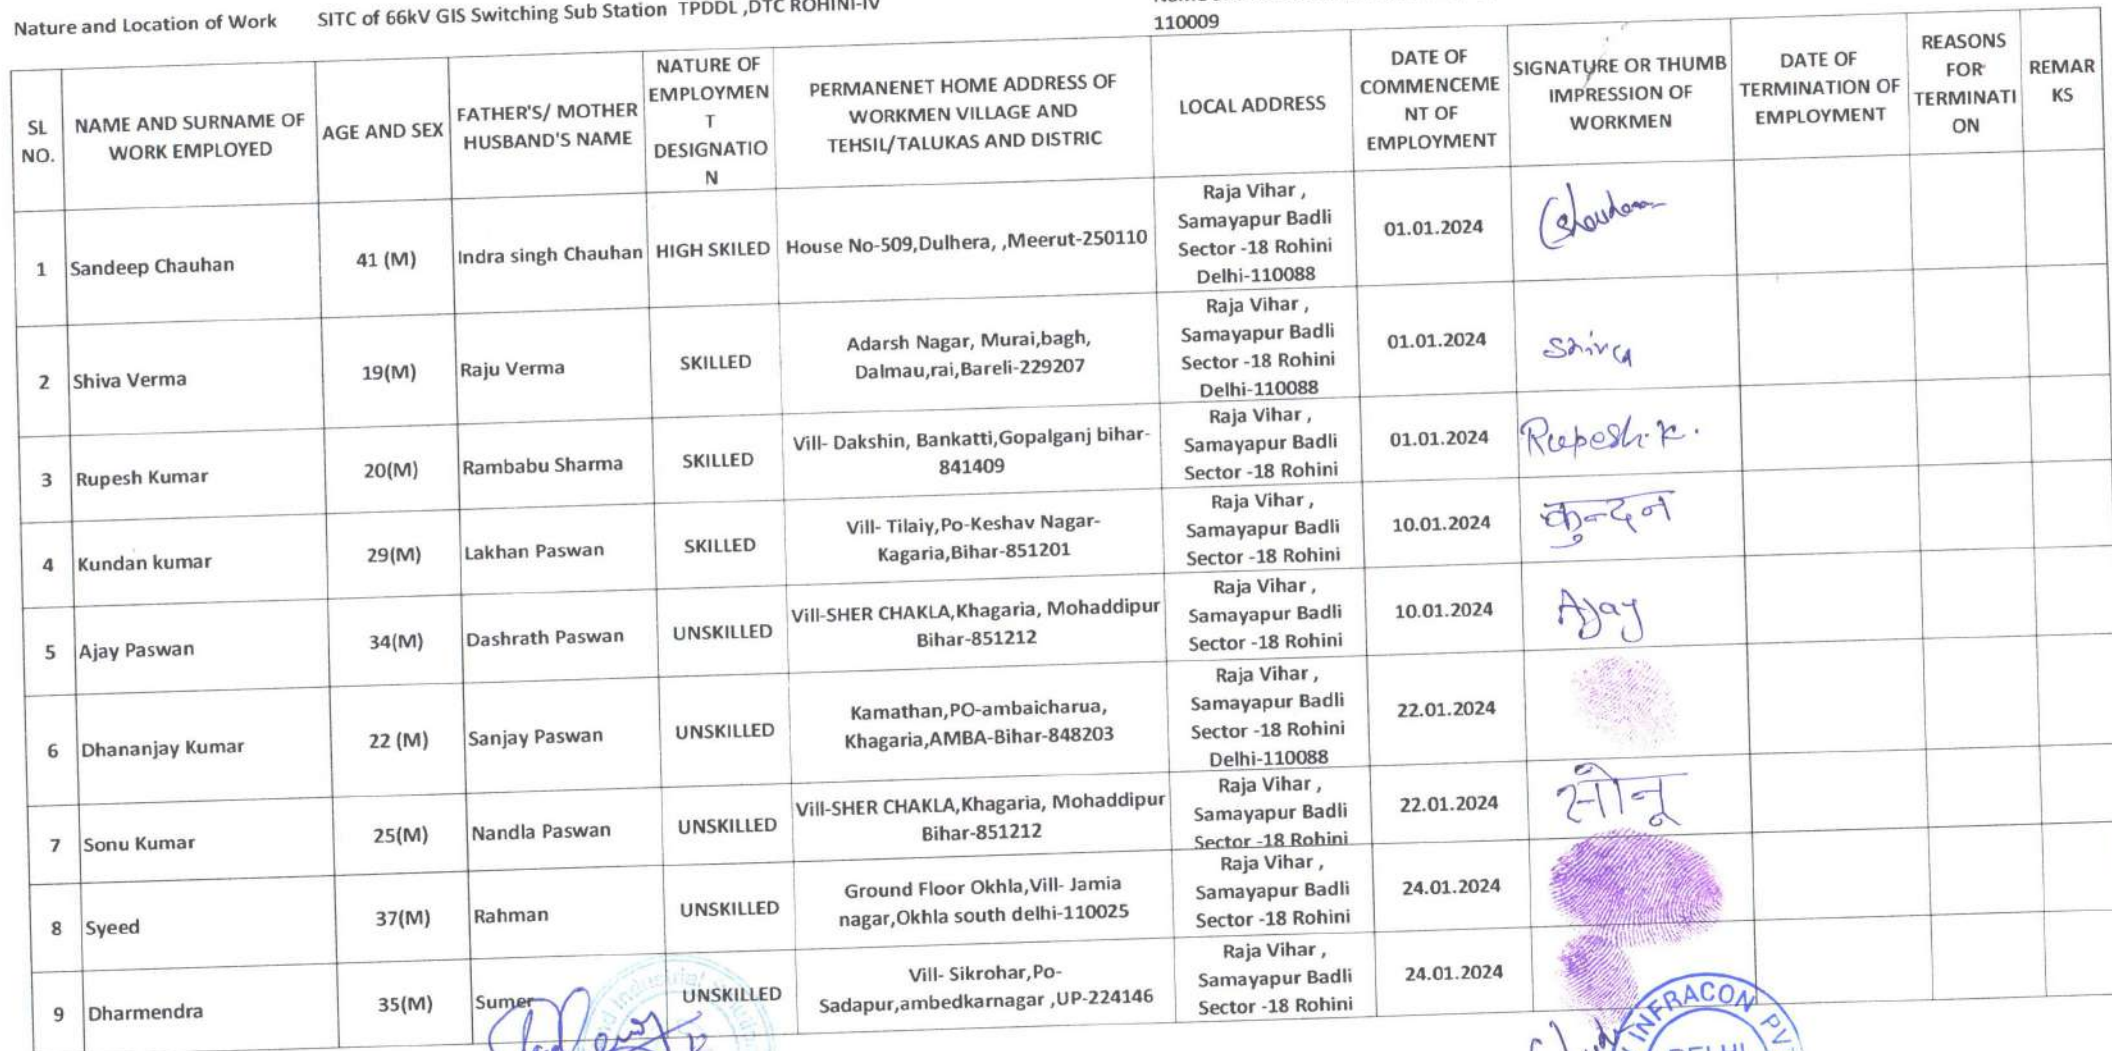 Nature and Location of Work SITC of 66kV GIS Switching Sub Station TPDDL ,DTC ROHINI-IV
110009
SL NO. | NAME AND SURNAME OF WORK EMPLOYED | AGE AND SEX | FATHER'S/ MOTHER HUSBAND'S NAME | NATURE OF EMPLOYMEN T DESIGNATIO N | PERMANENET HOME ADDRESS OF WORKMEN VILLAGE AND TEHSIL/TALUKAS AND DISTRIC | LOCAL ADDRESS | DATE OF COMMENCEME NT OF EMPLOYMENT | SIGNATURE OR THUMB IMPRESSION OF WORKMEN | DATE OF TERMINATION OF EMPLOYMENT | REASONS FOR TERMINATI ON | REMAR KS
1 | Sandeep Chauhan | 41 (M) | Indra singh Chauhan | HIGH SKILED | House No-509,Dulhera, ,Meerut-250110 | Raja Vihar , Samayapur Badli Sector -18 Rohini Delhi-110088 | 01.01.2024 |
2 | Shiva Verma | 19(M) | Raju Verma | SKILLED | Adarsh Nagar, Murai,bagh, Dalmau,rai,Bareli-229207 | Raja Vihar , Samayapur Badli Sector -18 Rohini Delhi-110088 | 01.01.2024 | Shiva
3 | Rupesh Kumar | 20(M) | Rambabu Sharma | SKILLED | Vill- Dakshin, Bankatti,Gopalganj bihar-841409 | Raja Vihar , Samayapur Badli Sector -18 Rohini | 01.01.2024 | Rupesh.K.
4 | Kundan kumar | 29(M) | Lakhan Paswan | SKILLED | Vill- Tilaiy,Po-Keshav Nagar-Kagaria,Bihar-851201 | Raja Vihar , Samayapur Badli Sector -18 Rohini | 10.01.2024 | कुन्दन
5 | Ajay Paswan | 34(M) | Dashrath Paswan | UNSKILLED | Vill-SHER CHAKLA,Khagaria, Mohaddipur Bihar-851212 | Raja Vihar , Samayapur Badli Sector -18 Rohini | 10.01.2024 | Ajay
6 | Dhananjay Kumar | 22 (M) | Sanjay Paswan | UNSKILLED | Kamathan,PO-ambaicharua, Khagaria,AMBA-Bihar-848203 | Raja Vihar , Samayapur Badli Sector -18 Rohini Delhi-110088 | 22.01.2024 |
7 | Sonu Kumar | 25(M) | Nandla Paswan | UNSKILLED | Vill-SHER CHAKLA,Khagaria, Mohaddipur Bihar-851212 | Raja Vihar , Samayapur Badli Sector -18 Rohini | 22.01.2024 | सोनू
8 | Syeed | 37(M) | Rahman | UNSKILLED | Ground Floor Okhla,Vill- Jamia nagar,Okhla south delhi-110025 | Raja Vihar , Samayapur Badli Sector -18 Rohini | 24.01.2024 |
9 | Dharmendra | 35(M) | Sumer | UNSKILLED | Vill- Sikrohar,Po-Sadapur,ambedkarnagar ,UP-224146 | Raja Vihar , Samayapur Badli Sector -18 Rohini | 24.01.2024 |
Industrial
INFRACON PV
DELHI